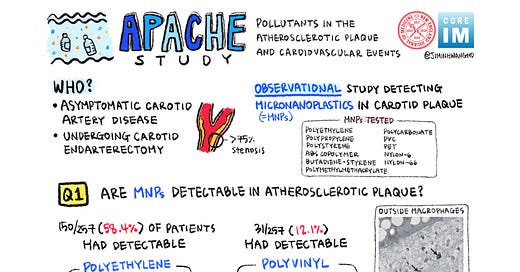 APACHE
STUDY
POLLUTANTS IN THE
ATHEROSCLEROTIC PLAQUE
AND CARDIOVASCULAR EVENTS
CORE
IM
@JIMINHWANGMD
WHO?
• ASYMPTOMATIC CAROTID
ARTERY DISEASE
• UNDERGOING CAROTID
ENDARTERECTOMY
>75%
stenosis
OBSERVATIONAL STUDY DETECTING
MICRONANOPLASTICS IN CAROTID PLAQUE
(=MNPs)
MNPs TESTED
POLYETHYLENE
POLYPROPYLENE
POLYSTYRENE
ABS COPOLYMER
BUTADIENE-STYRENE
POLYMETHYLMETHACRYLATE
POLYCARBONATE
PVC
PET
NYLON-6
NYLON-66
Q1 ARE MNPs DETECTABLE IN ATHEROSCLEROTIC PLAQUE?
150/257 (58.4%) OF PATIENTS
HAD DETECTABLE
POLYETHYLENE
31/257 (12.1%)
HAD DETECTABLE
POLYVINYL
OUTSIDE MACROPHAGES